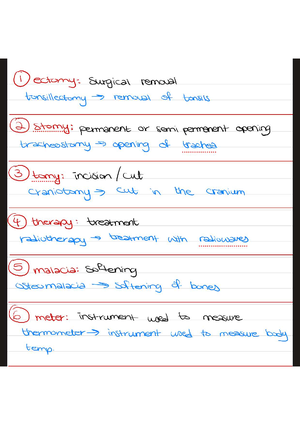 1 ectomy: Surgical removal
tonsillectomy → removal of tonsils
2 stomy: permanent or semi permanent opening
tracheostomy → opening of trachea
3 tomy: incision/cut
craniotomy → cut in the cranium
4 therapy: treatment
radiotherapy → treatment with radiowaves
5 malacia: Softening
osteomalacia → Softening of bones
6 meter: instrument used to measure
thermometer → instrument used to measure body
temp